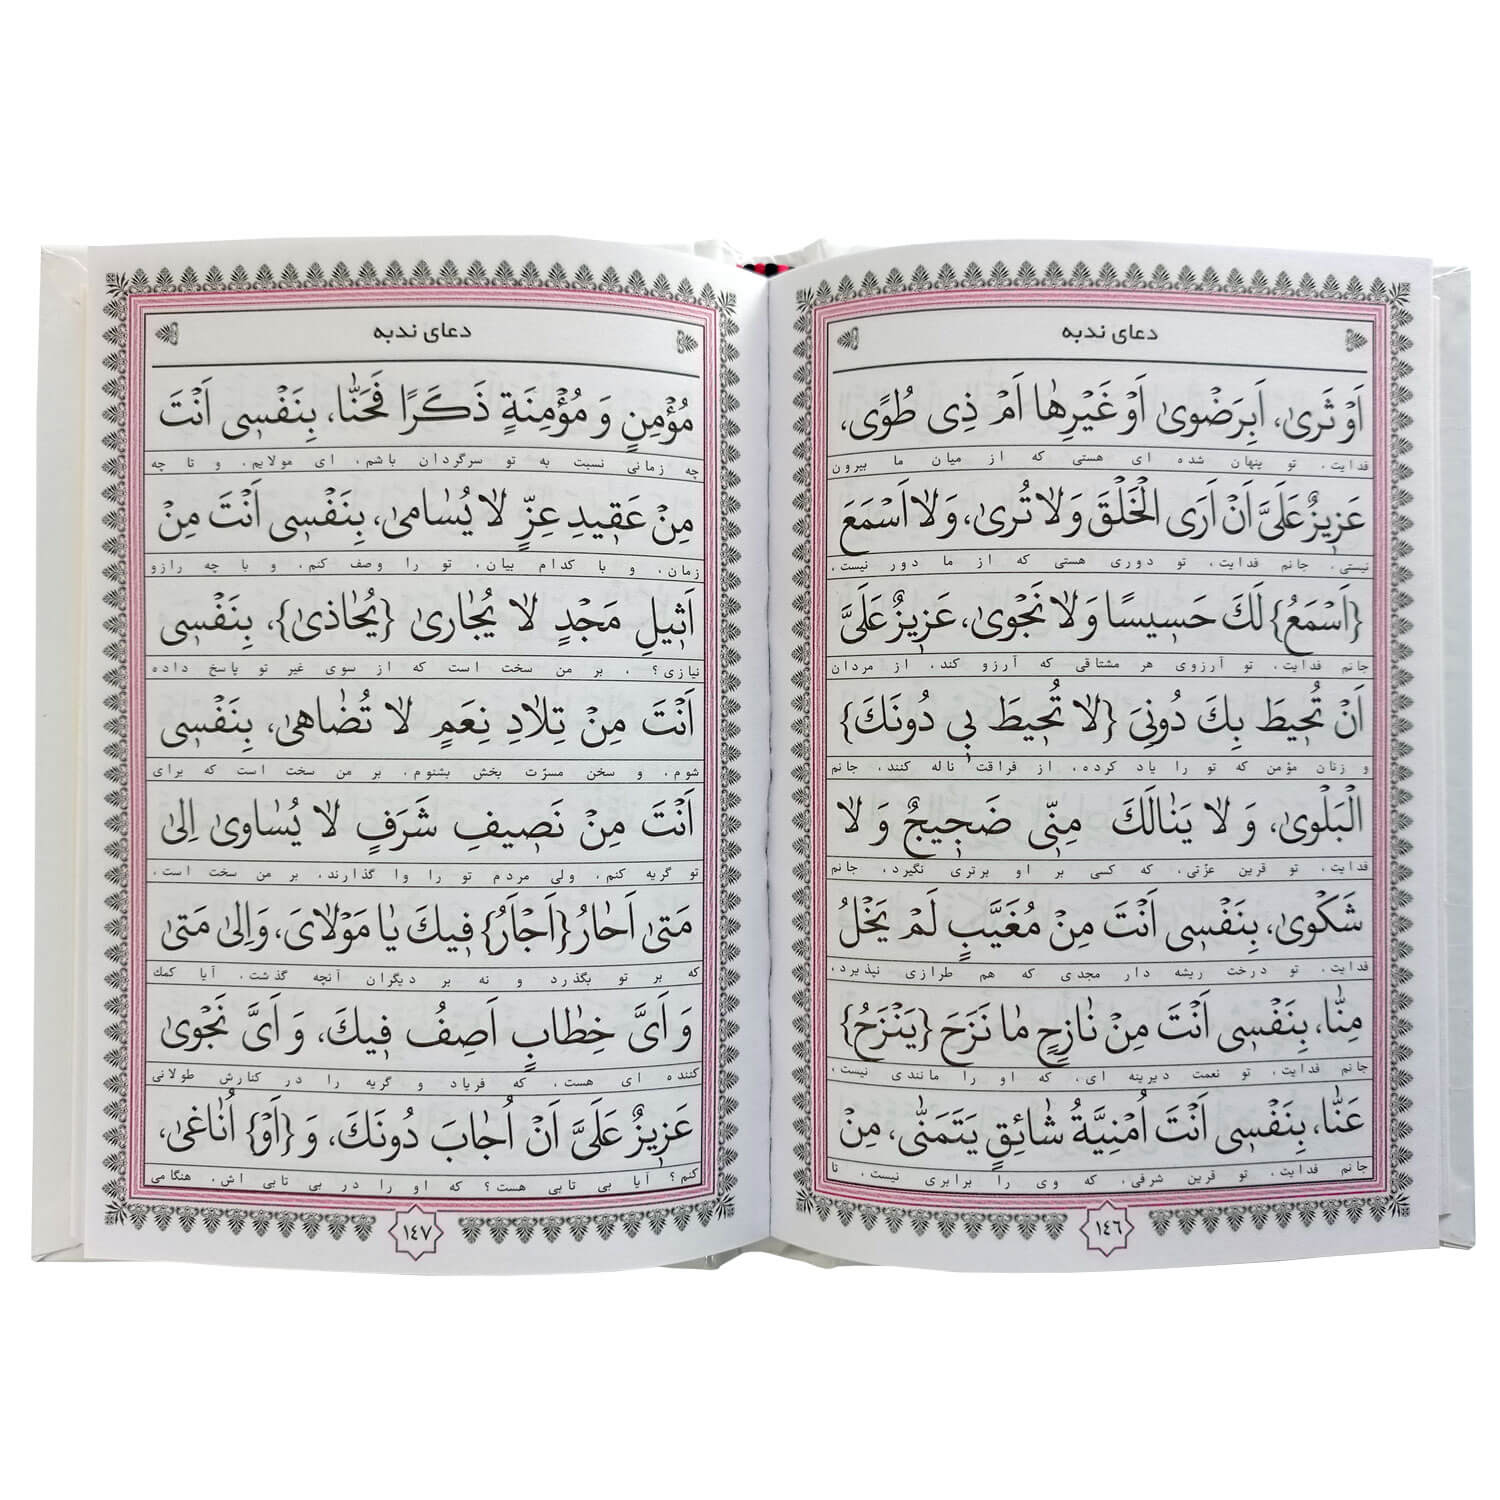 دعای ندبه
اَوْ ثَرىٰ، اَبِرَضْوىٰ اَوْ غَيْرِهٰا اَمْ ذِى طُوًى،
فدایت، تو پنهان شده ای هستی که از میان ما بیرون
عَزِيزٌ عَلَىَّ اَنْ اَرَى الْخَلْقَ وَ لاٰ تُرىٰ، وَ لاٰ اَسْمَعَ
نیستی. جانم فدایت، تو دوری هستی که از ما دور نیست،
{اَسْمَعُ} لَكَ حَسِيسًا وَ لاٰ نَجْوىٰ، عَزِيزٌ عَلَىَّ
جانم فدایت، تو آرزوی هر مشتاقی که آرزو کند، از مردان
اَنْ تُحِيطَ بِكَ دُونِىَ {لاٰ تُحِيطَ بِى دُونَكَ}
و زنان مؤمن که تو را یاد کرده، از فراقت ناله کنند، جانم
الْبَلْوىٰ، وَ لاٰ يَنٰالَكَ مِنّٖى ضَجِيجٌ وَ لاٰ
فدایت، تو قرین عزّتی، که کسی بر او برتری نگیرد، جانم
شَكْوىٰ، بِنَفْسٖى اَنْتَ مِنْ مُغَيَّبٍ لَمْ يَخْلُ
فدایت، تو درخت ریشه دار مجدی که هم طرازی نپذیرد،
مِنّٰا، بِنَفْسٖى اَنْتَ مِنْ نٰازِحٍ مٰا نَزَحَ {يَنْزَحُ}
جانم فدایت، تو نعمت دیرینه ای، که او را مانندی نیست،
عَنّٰا، بِنَفْسٖى اَنْتَ اُمْنِيَّةُ شٰائِقٍ يَتَمَنّٰى، مِنْ
جانم فدایت، تو قرین شرفی، که وی را برابری نیست، تا
۱۴۶
دعای ندبه
مُؤْمِنٍ وَ مُؤْمِنَةٍ ذَكَرًا فَحَنّٰا، بِنَفْسٖى اَنْتَ
چه زمانی نسبت به تو سرگردان باشم، ای مولایم، و تا چه
مِنْ عَقِيدِ عِزٍّ لاٰ يُسٰامىٰ، بِنَفْسٖى اَنْتَ مِنْ
زمان، و با کدام بیان، تو را وصف کنم، و با چه رازو
اَثِيلِ مَجْدٍ لاٰ يُجٰارىٰ {يُحٰاذىٰ}، بِنَفْسٖى
نیازی؟ ، بر من سخت است که از سوی غیر تو پاسخ داده
اَنْتَ مِنْ تِلاٰدِ نِعَمٍ لاٰ تُضٰاهىٰ، بِنَفْسٖى
شوم، و سخن مسرّت بخش بشنوم، بر من سخت است که برای
اَنْتَ مِنْ نَصِيفِ شَرَفٍ لاٰ يُسٰاوىٰ اِلىٰ
تو گریه کنم، ولی مردم تو را وا گذارند، بر من سخت است،
مَتىٰ اَحٰارُ{اَجْاَرُ} فِيكَ يٰا مَوْلاٰىَ، وَ اِلىٰ مَتىٰ
که بر تو بگذرد و نه بر دیگران آنچه گذشت، آیا کمک
وَ اَىَّ خِطٰابٍ اَصِفُ فِيكَ، وَ اَىَّ نَجْوىٰ
کننده ای هست، که فریاد و گریه را در کنارش طولانی
عَزِيزٌ عَلَىَّ اَنْ اُجٰابَ دُونَكَ، وَ {اَوْ} اُنٰاغىٰ،
کنم؟ آیا بی تابی هست؟ که او را در بی تابی اش، هنگامی
۱۴۷